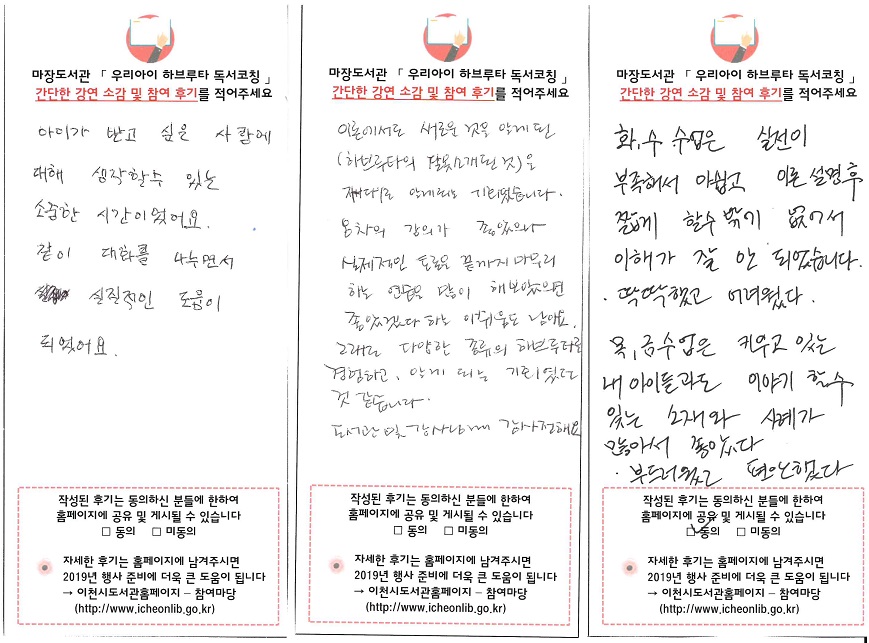 마장도서관 「 우리아이 하브루타 독서코칭 」
간단한 강연 소감 및 참여 후기를 적어주세요
아이가 받고 싶은 사랑에
대해 생각할수 있는
소중한 시간이었어요.
같이 대화를 나누면서
실질적인 도움이
되었어요.
작성된 후기는 동의하신 분들에 한하여
홈페이지에 공유 및 게시될 수 있습니다
□ 동의 □ 미동의
자세한 후기는 홈페이지에 남겨주시면
2019년 행사 준비에 더욱 큰 도움이 됩니다
→ 이천시도서관홈페이지 – 참여마당
(http://www.icheonlib.go.kr)
마장도서관 「 우리아이 하브루타 독서코칭 」
간단한 강연 소감 및 참여 후기를 적어주세요
이론에서도 새로운 것을 알게 된
(하브루타의 잘못소개된 것)을
제대로 알게되는 기회였습니다.
강의가 좋았으나
실제적인 토론을 끝까지 마무리
하는 연습을 많이 해보았으면
좋았겠다 하는 아쉬움도 남아요.
그래도 다양한 종류의 하브루타를
경험하고, 알게 되는 기회였던
것 같습니다.
도서관 및 강사님께 감사전해요
작성된 후기는 동의하신 분들에 한하여
홈페이지에 공유 및 게시될 수 있습니다
□ 동의 □ 미동의
자세한 후기는 홈페이지에 남겨주시면
2019년 행사 준비에 더욱 큰 도움이 됩니다
→ 이천시도서관홈페이지 – 참여마당
(http://www.icheonlib.go.kr)
마장도서관 「 우리아이 하브루타 독서코칭 」
간단한 강연 소감 및 참여 후기를 적어주세요
화, 수 수업은 실전이
부족해서 아쉽고 이론 설명후
짧게 할수 밖에 없어서
이해가 잘 안 되었습니다.
. 딱딱했고 어려웠다.
목, 금수업은 키우고 있는
내 아이들과도 이야기 할 수
있는 소재와 사례가
많아서 좋았다
. 부드러웠고 편안했다
작성된 후기는 동의하신 분들에 한하여
홈페이지에 공유 및 게시될 수 있습니다
□ 동의 □ 미동의
자세한 후기는 홈페이지에 남겨주시면
2019년 행사 준비에 더욱 큰 도움이 됩니다
→ 이천시도서관홈페이지 – 참여마당
(http://www.icheonlib.go.kr)